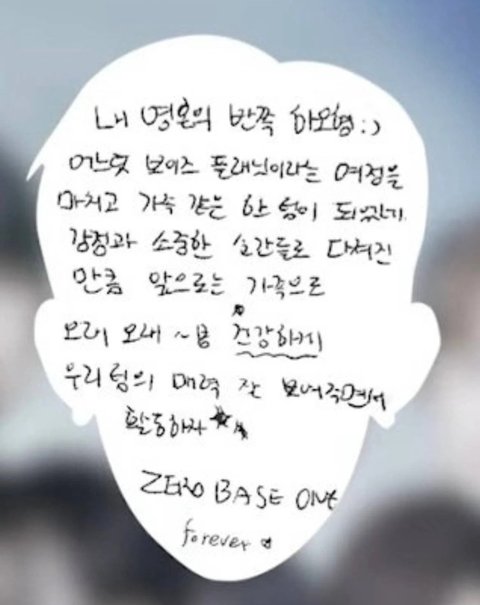 내 영혼의 반쪽 하오형 :)
어느덧 보이즈 플래닛이라는 여정을
마치고 가족 같은 한 팀이 되었기
감정과 소중한 순간들로 다져진
만큼 앞으로는 가족으로
오래 오래 ~ 봄 건강하게
우리 팀의 매력 잘 보여주면서
활동하자
ZERO BASE ONE
forever